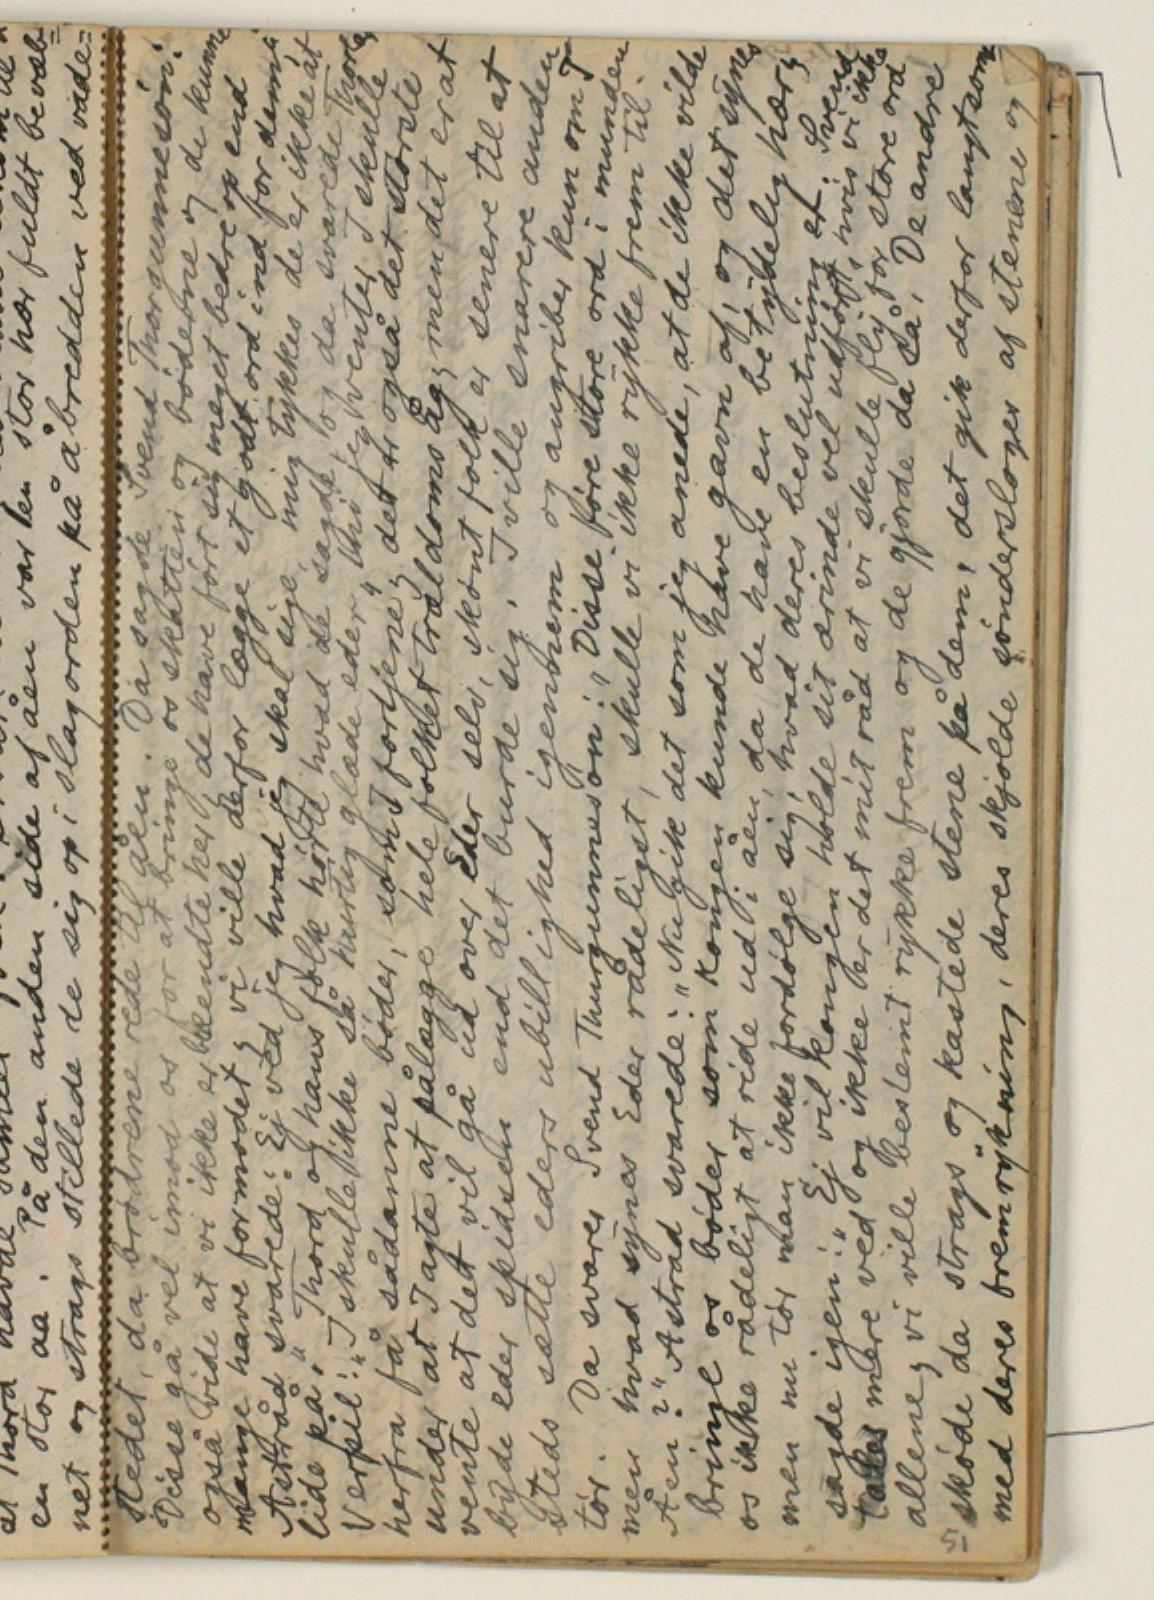 en stor aa. På den anden side af åen var en stor hær fuldt bevæb=
net og straks stillede de sig op i slagorden på åbredden ved vade=
stedet, da brødrene rede til åen. Da sagde Svend Thorgunnesøn:
Disse gå vel imod os for at bringe os skatten og bøderne og de kunne
også vide at vi ikke er bleven ventede her, de have fört sig meget bedre op end
mange have formodet; vi ville derfor lægge et godt ord ind for dem."
Astråd svarede: "Ej ved jeg hvad jeg skal sige, mig tykkes de er ikke at
lide på." Thord og hans folk hörte hvad de sagde, og da svarede Thord
Verpil: "I skulle ikke så hurtig glæde eder, thi jeg venter, I skulle
herfra få sådanne bøder, som I fortjene; det er også det störste
under at I agte at pålægge hele folket trældoms åg; men det er at
vente at det vil gå ud over Eder selv, skönt folk er senere til at
byde eder spidsen end det burde sig. I ville snarere anden
steds sætte eders ubillighed igennem og angriber kun om I
tör. Da svarer Svend Thurgunnusön: "Disse före store ord i munden
men hvad synes Eder rådeligst, skulle vi ikke rykke frem til
Åen?" Astrad svarede: "Nu gik det som jeg anede, at de ikke vilde
bringe os bøder som Kongen kunde have gavn af, og det synes
os ikke rådeligt at ride ud i åen, da de have en betydelig hær;
men nu tör man ikke fordölge sig, hvad deres beslutning er. Svend
sagde igen: "Ej vil kongen holde sit ærinde vel udfört, hvis vi ikke
tales mere ved og ikke er det mit råd at vi skulle fly for store ord
allene; vi ville bestemt rykke frem og de gjorde da så. De andre
sköde da strags og kastede stene på dem, det gik derfor langtsomt
med deres fremrykning, deres skjolde söndersloges af stenene og
51